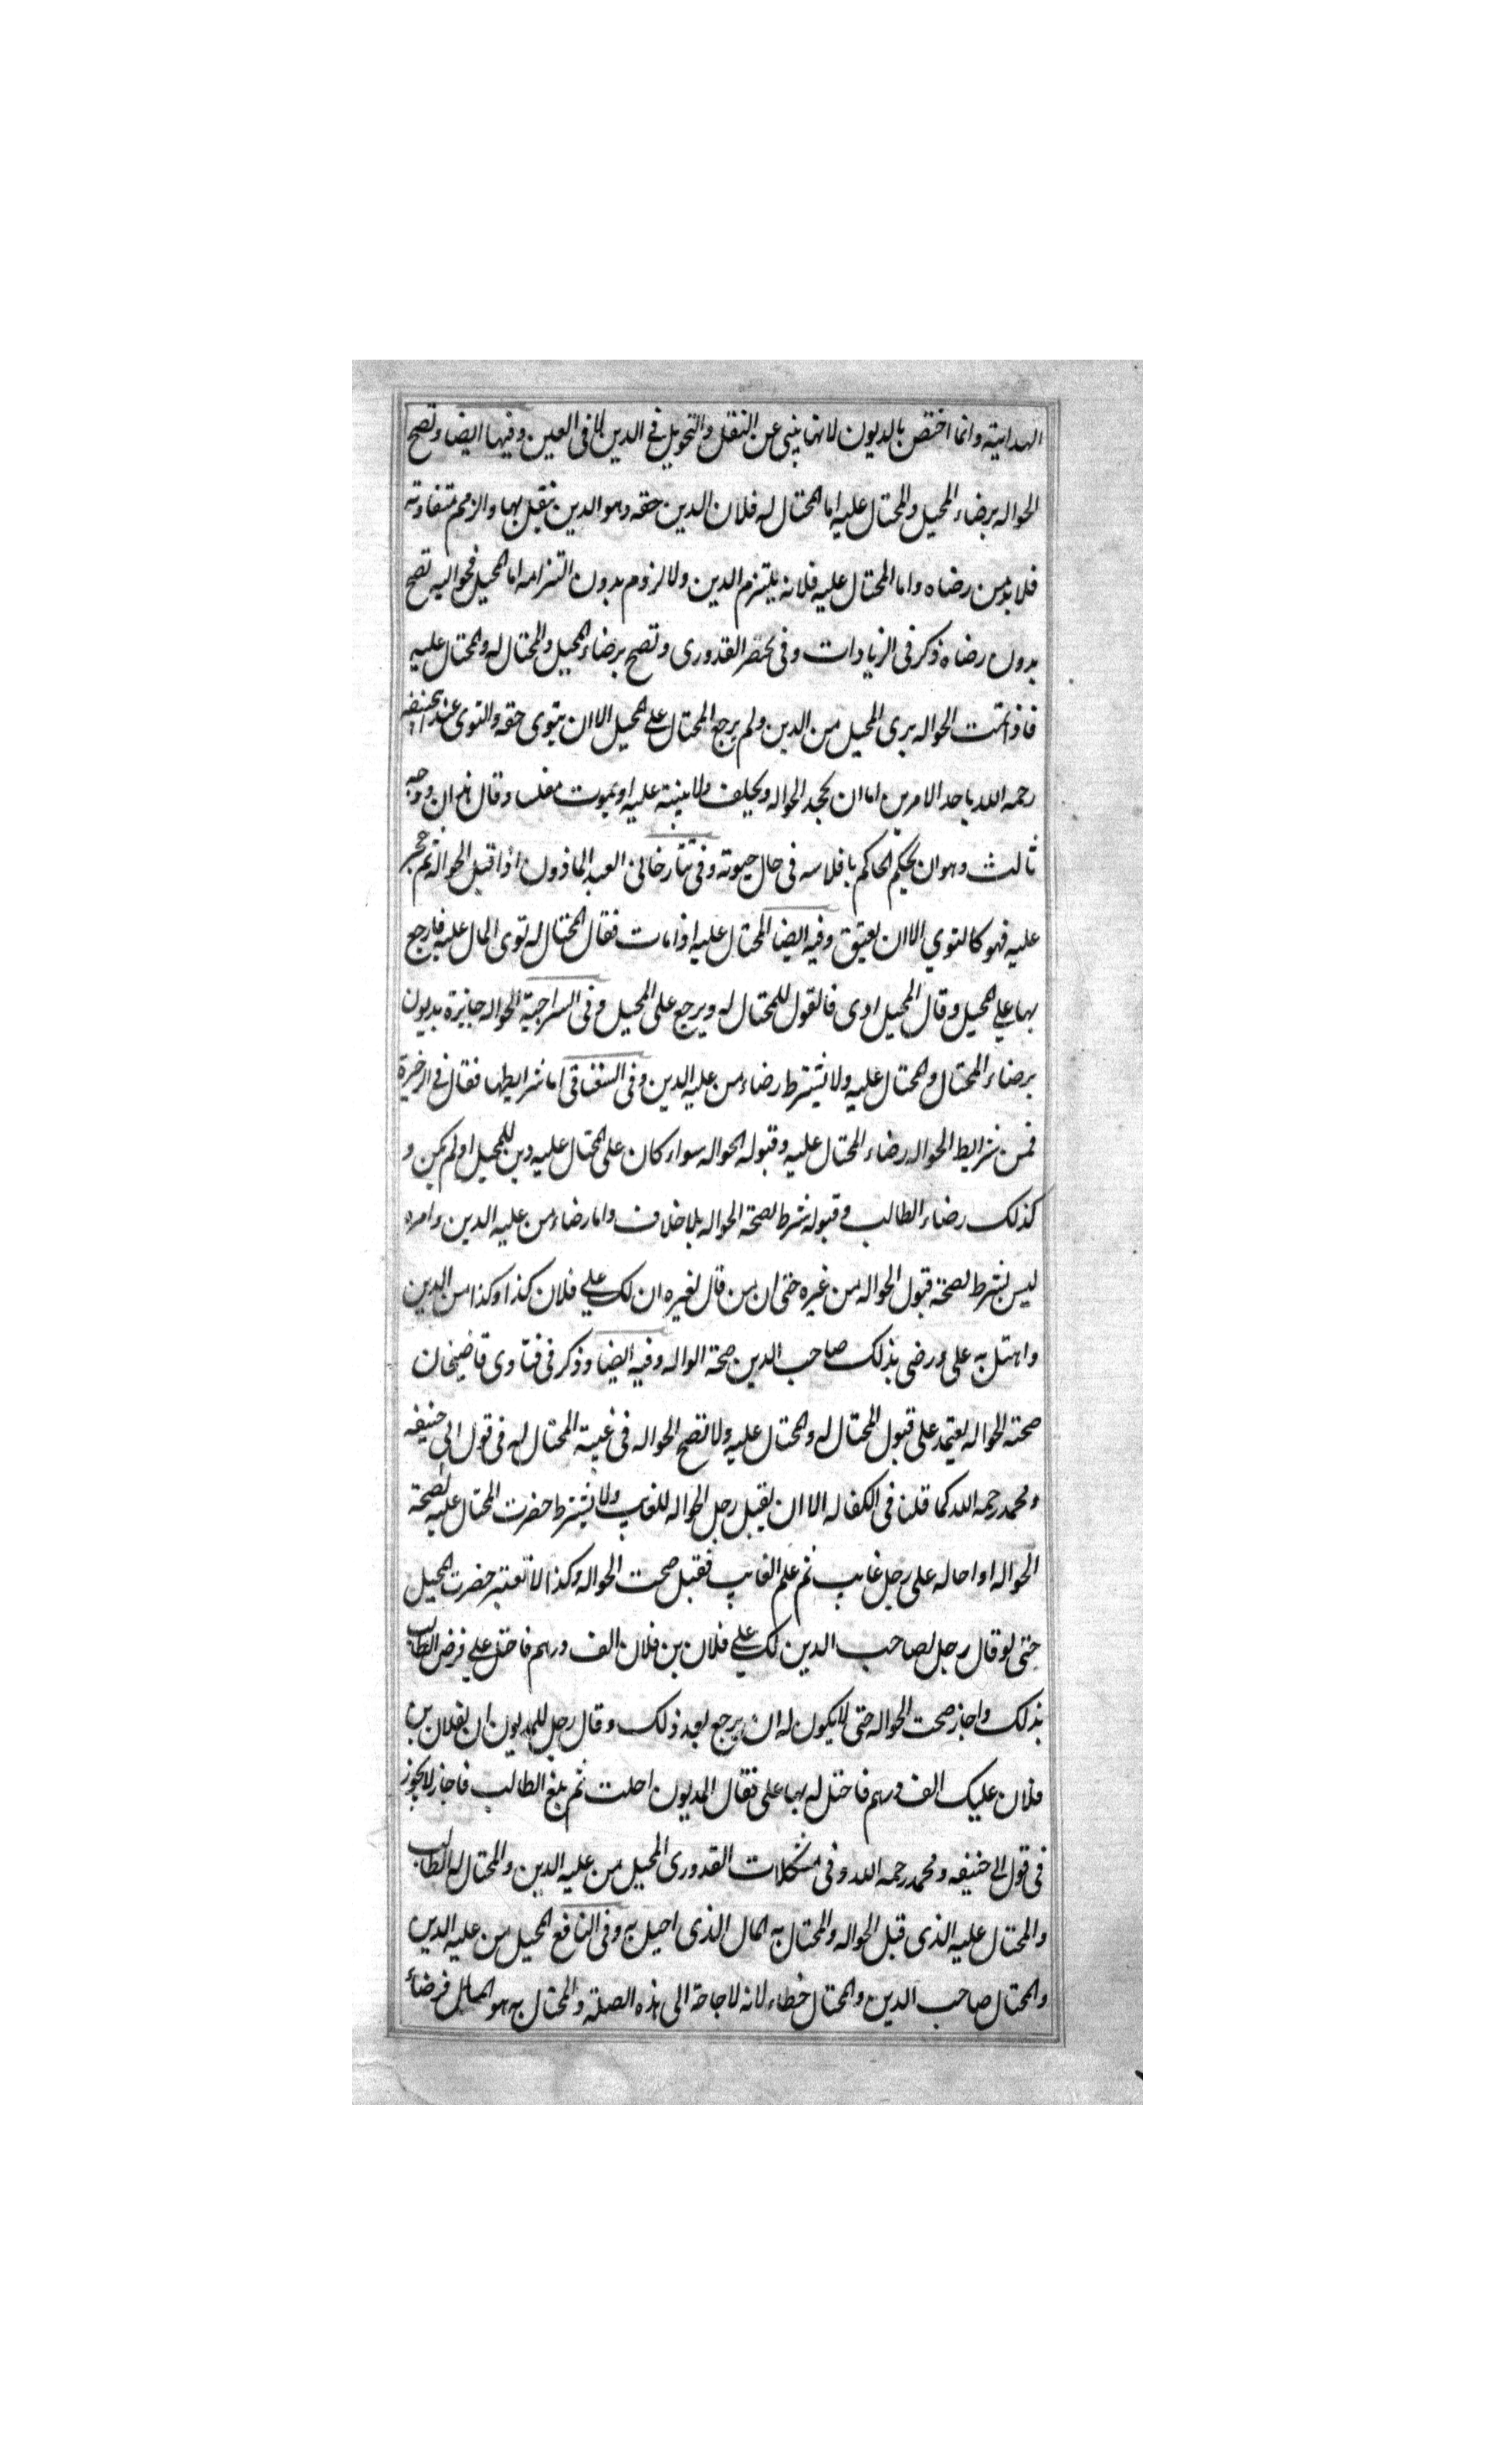 الهداية وانما اختص بالديون لانها ينبى عن النقل والتحويل فى الدين لا فى العين وفيها ايضا وتصح
الحواله برضاء المحيل والمحتال عليه اما المحتال له فلان الدين حقه وهو الدين ينقل بها والذمم متفاوته
فلا بد من رضاه واما المحتال عليه فلانه يلتزم الدين ولا لزوم بدون التزامه اما المحيل فحواليه تصح
بدون رضاه ذكر فى الزيادات وفى مختصر القدورى وتصح برضاء المحيل والمحتال له والمحتال عليه
فاذا تمت الحواله برى المحيل من الدين ولم يرجع المحتال على المحيل الا ان يتوى حقه والتوى عند ابيحنيفه
رحمه الله باحد الامرين اما ان يجحد الحواله ويحلف ولا بينة عليه او يموت مفلسا وقال هذان ووجه
ثالث وهو ان يحكم الحاكم بافلاسه فى حال حيوته وفى تتارخانى العبد الماذون اذا قبل الحوالة ثم حجر
عليه فهو كالتوي الا ان يعتيق وفيه ايضا المحتال عليه اذا مات فقال المحتال له توى المال عليه فارجع
بها علي المحيل وقال المحيل ادى فالقول للمحتال له ويرجع على المحيل وفى السراجية الحواله جايزة بديون
برضاء المحتال والمحتال عليه ولا يشترط رضاء من عليه الدين وفى السغناقى اما شرايطها فقال فى الذخيرة
فمن شرايط الحواله رضاء المحتال عليه وقبوله الحواله سواء كان على المحتال عليه دين للمحيل او لم يكن و
كذلك رضاء الطالب وقبوله شرط لصحة الحواله بلا خلاف واما رضاء من عليه الدين وامره
ليس بشرط لصحة قبول الحواله من غيره حتى ان من قال لغيره ان لك علي فلان كذا وكذا من الدين
واهتل به على ورضى بذلك صاحب الدين صحة الواله وفيه ايضا وذكر فى فتاوى قاضيخان
صحة الحواله يعتمد على قبول المحتال له والمحتال عليه ولا تصح الحواله فى غيبة المحتال له فى قول ابى حنيفه
ومحمد رحمه الله كما قلنا فى الكفاله الا ان يقبل رجل الحواله للغايب ولا يشترط حضرت المحتال عليه لصحة
الحواله او احاله على رجل غايب ثم علم الغايب فقبل صحت الحواله وكذا لا تعتبر حضرت المحيل
حتى لو قال رجل لصاحب الدين لك علي فلان بن فلان الف درهم فاحتل علي فرضى الطالب
بذلك واجاز صحت الحواله حتى لا يكون له ان يرجع بعد ذلك وقال رجل للمديون ان لفلان بن
فلان عليك الف درهم فاحتل له بها على فقال المديون احلت ثم بلغ الطالب فاجاز لا يجوز
فى قول ابى حنيفه ومحمد رحمه الله وفى مشكلات القدورى المحيل من عليه الدين والمحتال له الطالب
والمحتال عليه الذى قبل الحواله والمحتال به المال الذى احيل به وفى النافع المحيل من عليه الدين
والمحتال صاحب الدين والمحتال خطاء لانه لا حاجة الى هذه الصلة والمحتال به هو المال فرضاء